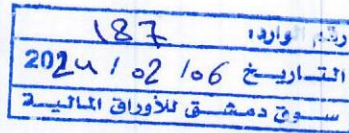 رقم الوارد: 187
التاريخ 2024/02/06
سوق دمشق للأوراق المالية